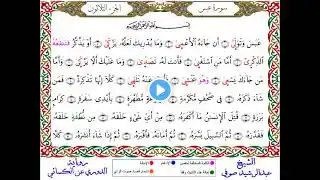 سورة عبس
الجزء الثلاثون
عَبَسَ وَتَوَلَّىٰ أَن جَاءَهُ الْأَعْمَىٰ وَمَا يُدْرِيكَ لَعَلَّهُ يَزَّكَّىٰ أَوْ يَذَّكَّرُ فَتَنفَعُهُ
الذِّكْرَىٰ أَمَّا مَنِ اسْتَغْنَىٰ فَأَنتَ لَهُ تَصَدَّىٰ وَمَا عَلَيْكَ أَلَّا يَزَّكَّىٰ وَأَمَّا
مَن جَاءَكَ يَسْعَىٰ وَهْوَ يَخْشَىٰ فَأَنتَ عَنْهُ تَلَهَّىٰ كَلَّا إِنَّهَا تَذْكِرَةٌ فَمَن
شَاءَ ذَكَرَهُ فِي صُحُفٍ مُّكَرَّمَةٍ مَّرْفُوعَةٍ مُّطَهَّرَةٍ بِأَيْدِي سَفَرَةٍ كِرَامٍ
بَرَرَةٍ قُتِلَ الْإِنسَانُ مَا أَكْفَرَهُ مِنْ أَيِّ شَيْءٍ خَلَقَهُ مِن نُّطْفَةٍ خَلَقَهُ
فَقَدَّرَهُ ثُمَّ السَّبِيلَ يَسَّرَهُ ثُمَّ أَمَاتَهُ فَأَقْبَرَهُ ثُمَّ إِذَا شَاءَ أَنشَرَهُ كَلَّا لَمَّا
الشيخ
عبدالرشيد صوفي
رواية
الدوري عن الكسائي